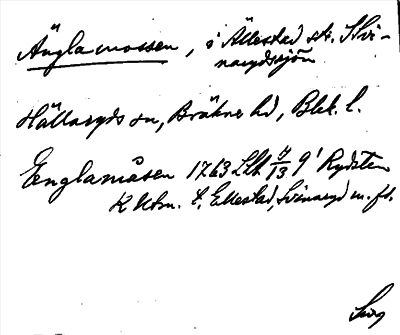 Änglamossen, i Ällestad st. Svi-
narydssjön
Hällaryds sn, Bräkne hd, Blek. l.
Englamåsen 1763 Llh 7/13 9' Rydsten
K Utm. t. Ellestad, Svinaryd m. fl.